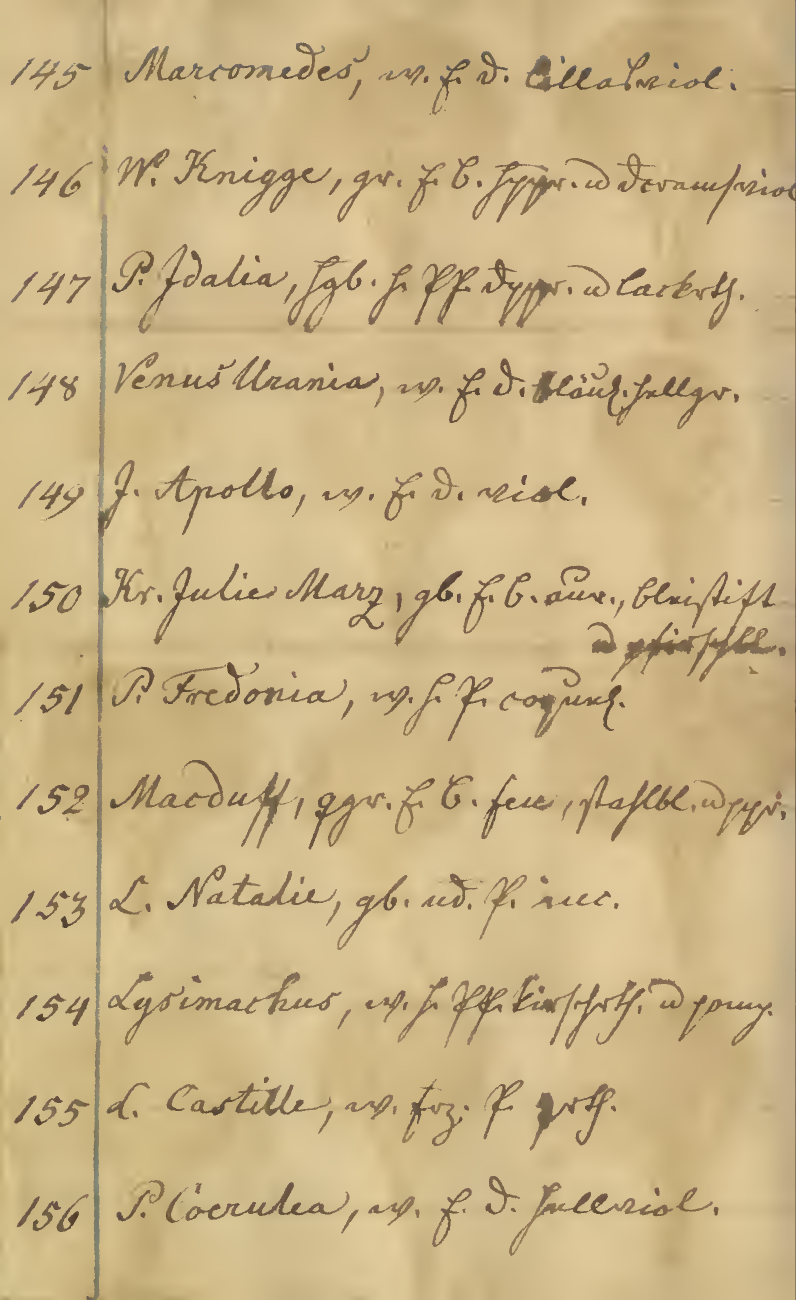 145 Marcomedes, w. f. d. lillaviol.
146 W. Knigge, gr. f. b. hppr. u dcramsviol
147 P. Idalia, hgb. h. Pf. dppr. u lackrth.
148 Venus Urania, w. f. d. bläul. hellgr.
149 J. Apollo, w. f. d. viol.
150 Kr. Julie Marz, gb. f. b. aur., bleistift
u pfirschbl.
151 P. Fredonia, w. h. P. coquel.
152 Macduff, qgr. f. b. feu, stahlbl. u ppr.
153 L. Natalie, gb. nd. P. inc.
154 Lysimachus, w. h. Pf. kirschrth. u pomp.
155 L. Castille, w. frz. P. prth.
156 P. Coerulea, w. f. d. hellviol.